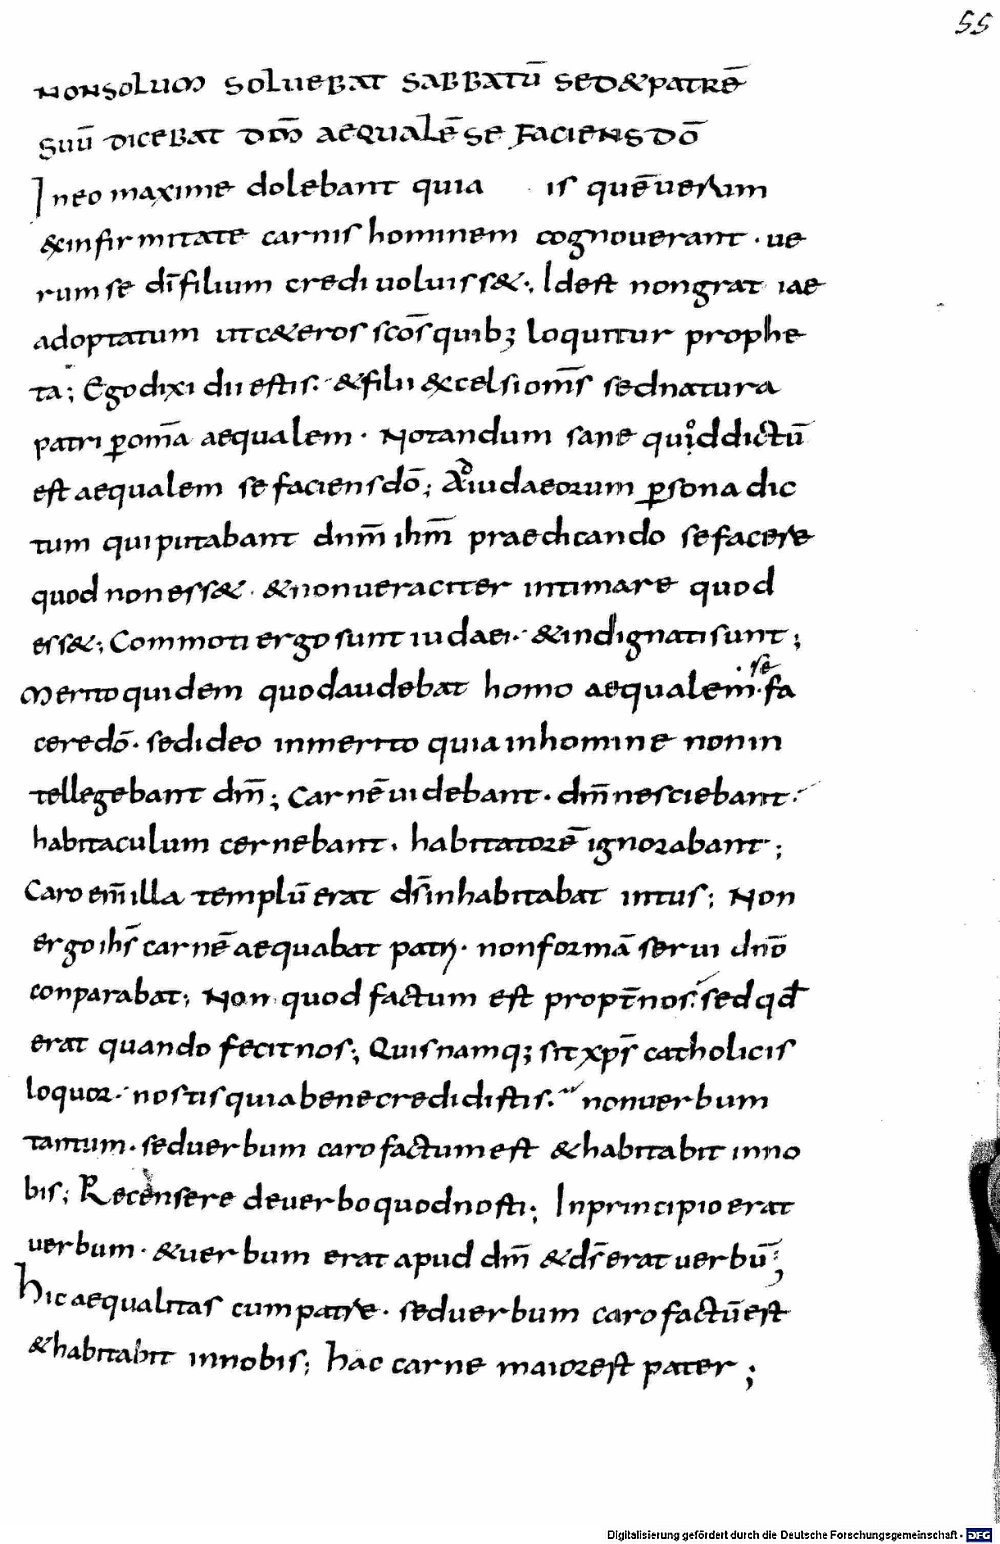 55
NON SOLUM SOLUEBAT SABBATŪ SED & PATRĒ
SUŪ DICEBAT DM̄ AEQUALĒ SE FACIENS DŌ
In eo maxime dolebant quia is quē uerum
& infirmitate carnis hominem cognouerant · ue
rum se dī filium credi uoluiss&; Idest non gratiae
adoptatum ut c&eros scōs quib; loquitur prophe
ta; Ego dixi dii estis· & filii excelsi om̄s sed natura
patri ꝑ om̄a aequalem · Notandum sane quoddictū
est aequalem se faciens dō; A iudaeorum ꝑsona dic
tum qui putabant dnm̄ ihm̄ praedicando se facere
quod non ess& · & non ueraciter intimare quod
ess&; Commoti ergo sunt iudaei· & indignati sunt;
Merito quidem quod audebat homo aequalem · se fa
cere dō · sed ideo inmerito quia in homine non in
tellegebant dm̄; Carnē uidebant · dm̄ nesciebant·
habitaculum cernebant · habitatorē ignorabant;
Caro em̄ illa templū erat ds̄ inhabitabat intus; Non
ergo ihs̄ carnē aequabat patri · non formā serui dnō
conparabat; Non quod factum est propt̄ nos· sed qđ
erat quando fecit nos; Quis namq; sit xps̄ catholicis
loquor· nostis quia bene credidistis· non uerbum
tantum · sed uerbum caro factum est & habitabit in no
bis; Recensere de uerbo quod nosti; In principio erat
uerbum · & uerbum erat apud dm̄ & ds̄ erat uerbū;
Hic aequalitas cum patre · sed uerbum caro factū est
& habitabit in nobis; hac carne maior est pater;
Digitalisierung gefördert durch die Deutsche Forschungsgemeinschaft - DFG